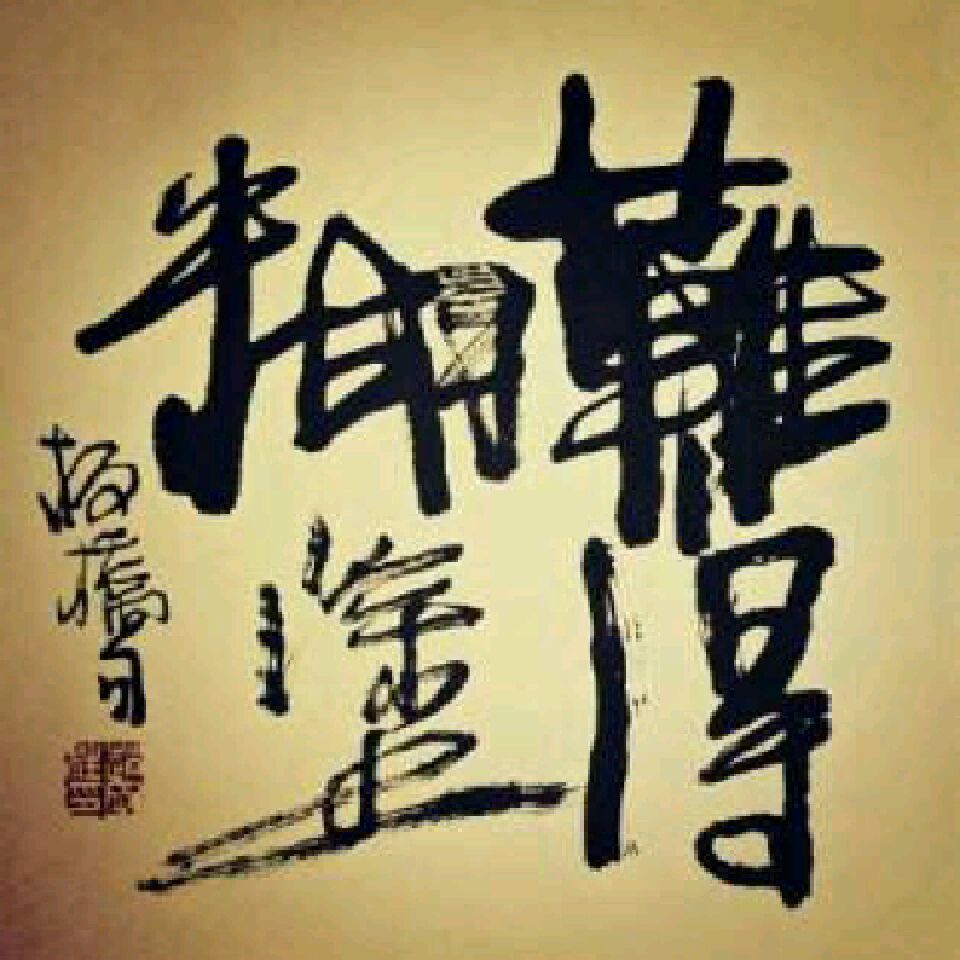 難得
糊塗
板橋